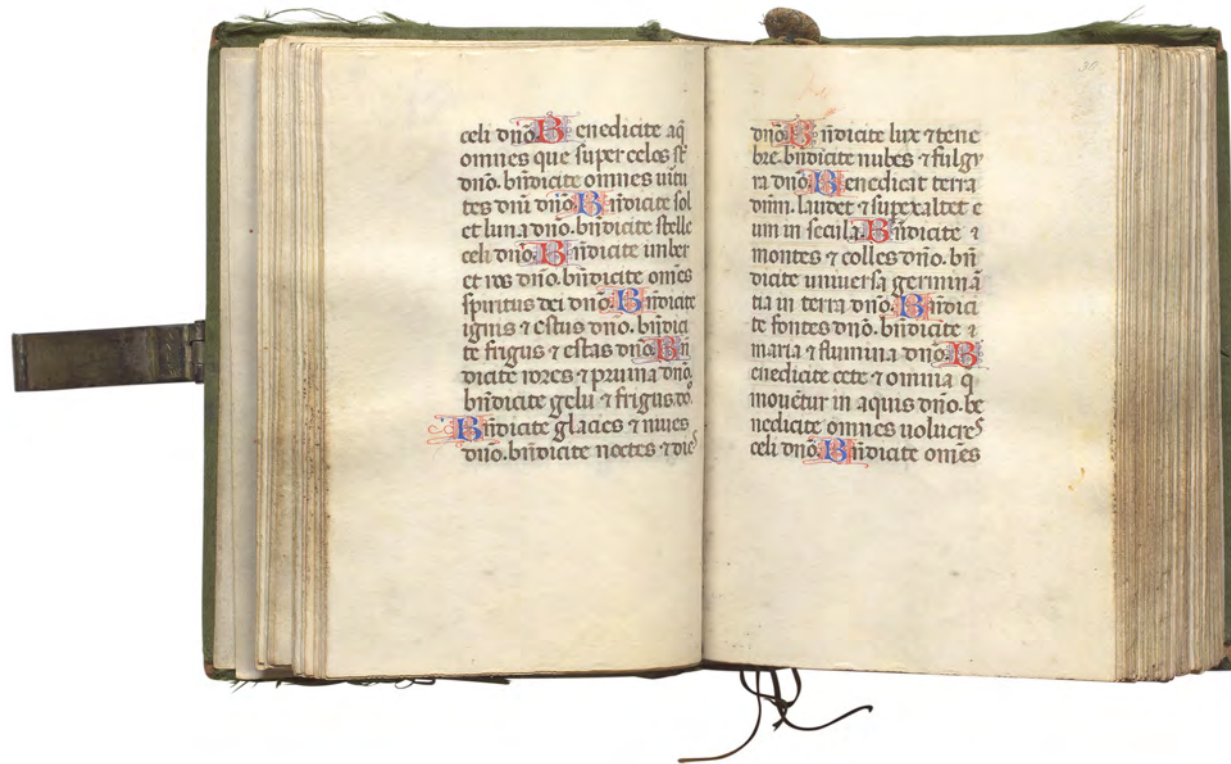 celi dn̄o. Benedicite aq̄
omnes que super celos st̄
dn̄o. bn̄dicite omnes uirtu
tes dn̄i dn̄o. Bn̄dicite sol
et luna dn̄o. bn̄dicite stelle
celi dn̄o. Bn̄dicite imber
et ros dn̄o. bn̄dicite om̄es
spiritus dei dn̄o. Bn̄dicite
ignis ⁊ estus dn̄o. bn̄dici
te frigus ⁊ estas dn̄o. Bn̄
dicite rores ⁊ pruina dn̄o.
bn̄dicite gelu ⁊ frigus do.
Bn̄dicite glacies ⁊ niues
dn̄o. bn̄dicite noctes ⁊ dies
30
dn̄o. Bn̄dicite lux ⁊ tene
bre. bn̄dicite nubes ⁊ fulgu
ra dn̄o. Benedicat terra
dn̄m. laudet ⁊ superexaltet e
um in secula. Bn̄dicite
montes ⁊ colles dn̄o. bn̄
dicite uniuersa germinā
tia in terra dn̄o. Bn̄dici
te fontes dn̄o. bn̄dicite
maria ⁊ flumina dn̄o. B
enedicite cete ⁊ omnia q̄
mouētur in aquis dn̄o. be
nedicite omnes uolucres
celi dn̄o. Bn̄dicite om̄es